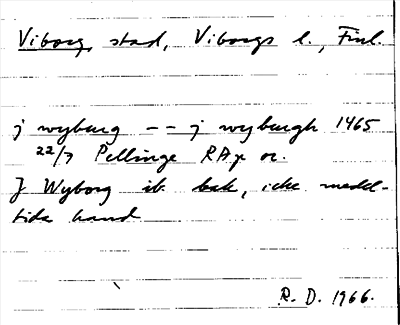 Viborg, stad, Viborgs l., Finl.
j wyburg -- j wyburgh 1465
22/7 Pellinge RAp or.
J Wyborg ib. bak, icke medel-
tida hand
R. D. 1966.